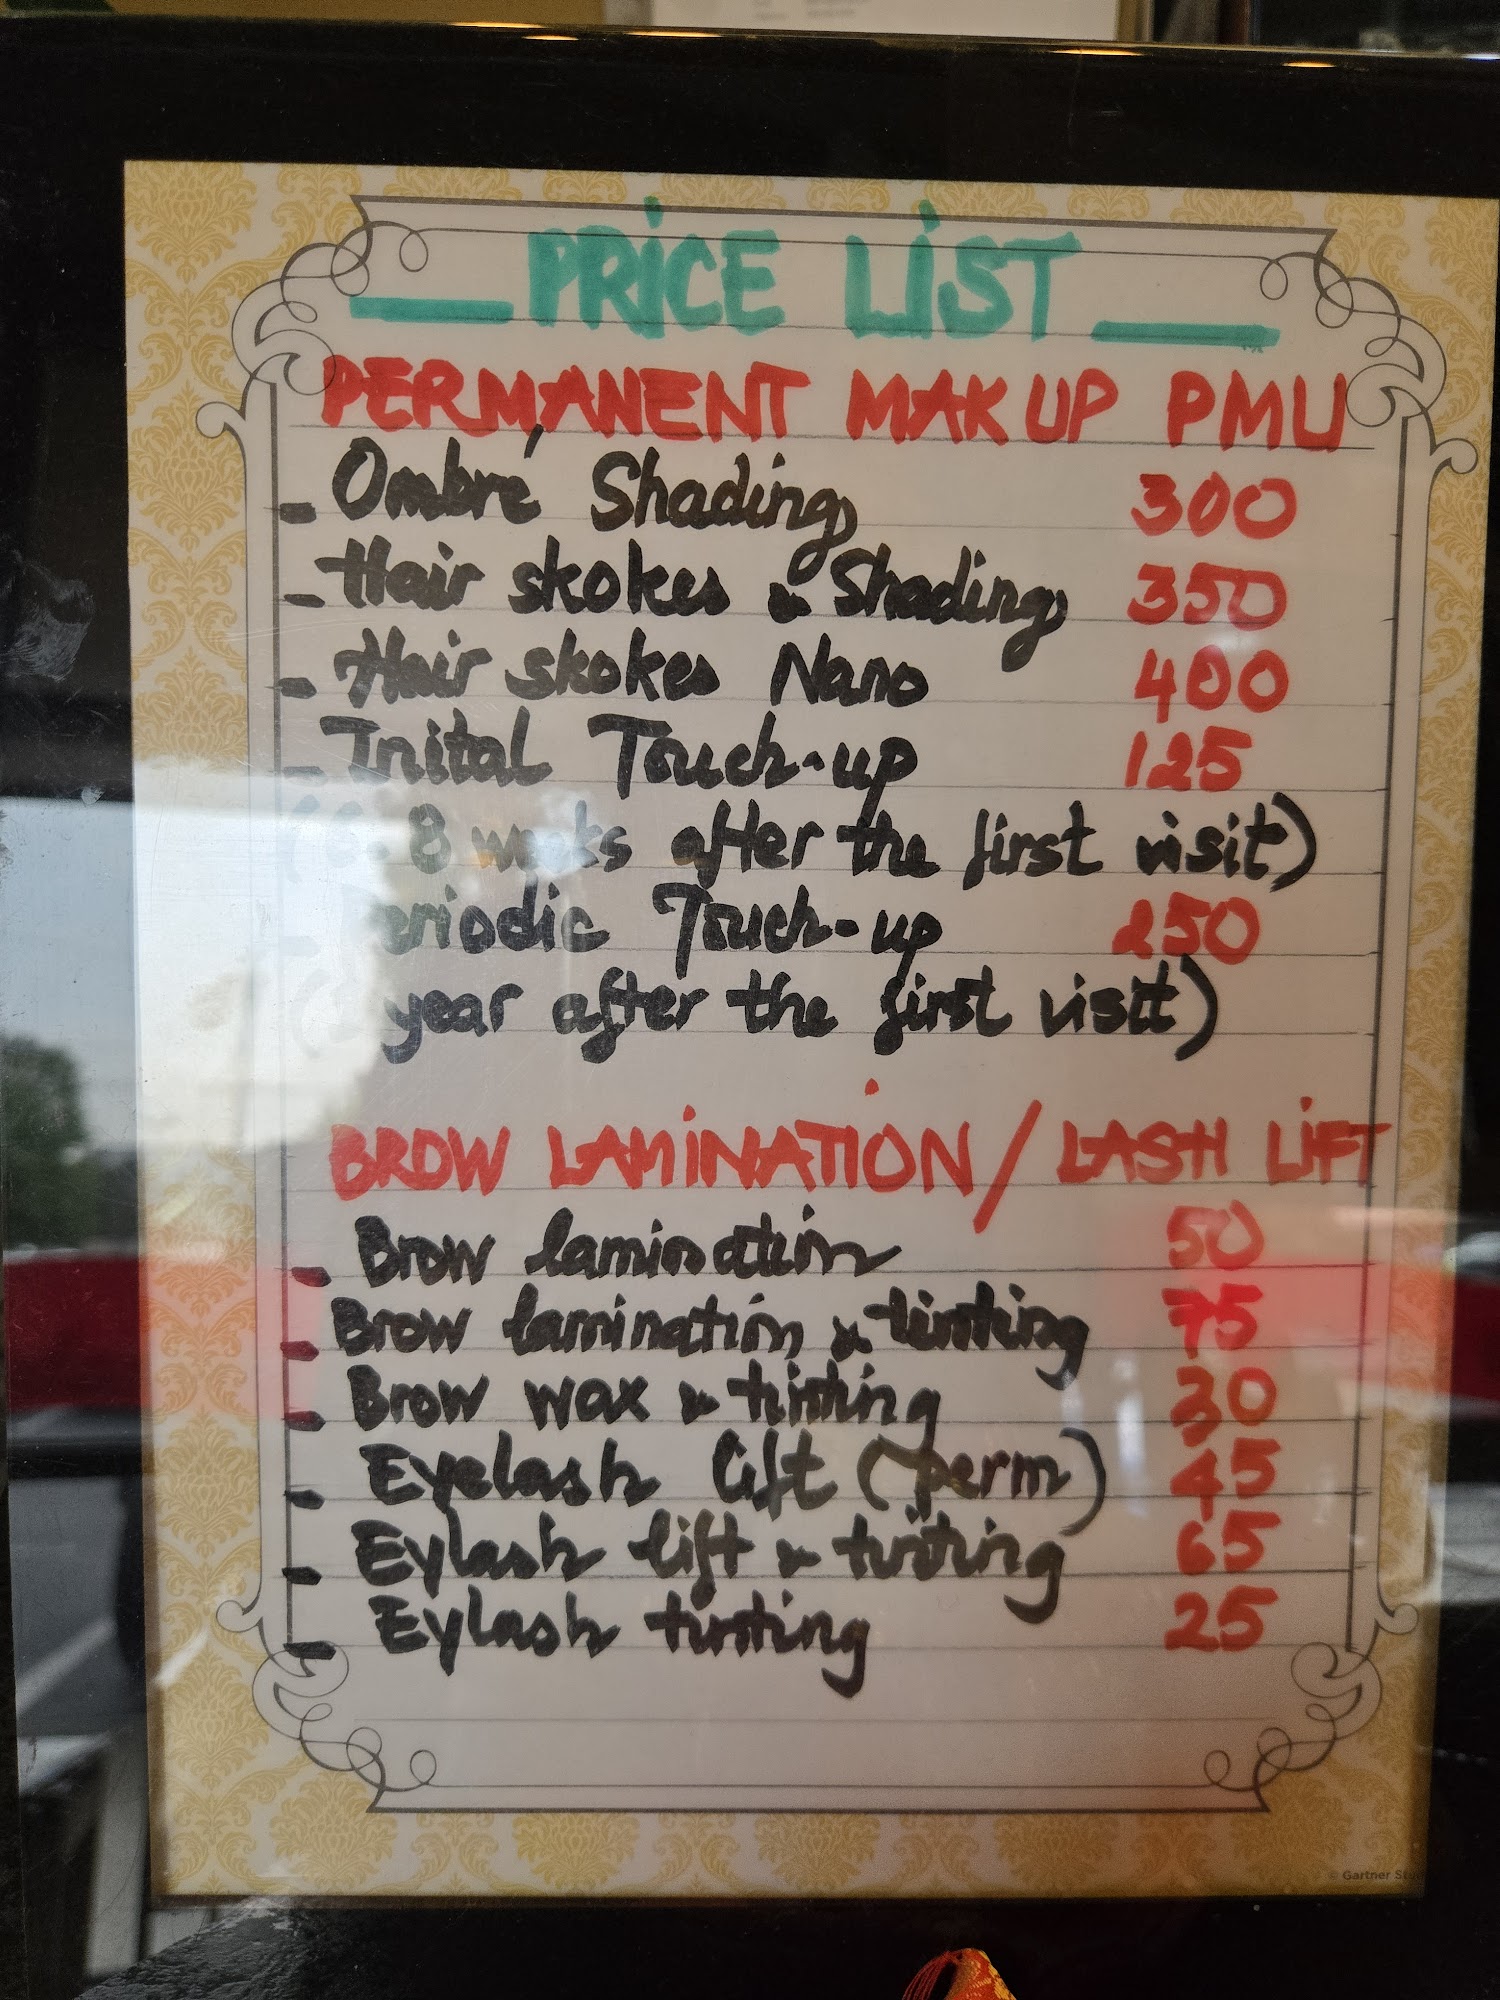 PRICE LIST
PERMANENT MAKUP PMU
- Ombré Shading 300
- Hair skokes & Shading 350
- Hair skokes Nano 400
- Inital Touch-up 125
8 weeks after the first visit)
Periodic Touch-up 250
year after the first visit)
BROW LAMINATION / LASH LIFT
- Brow lamination 50
- Brow lamination & tinting 75
- Brow wax & tinting 30
- Eyelash lift (perm) 45
- Eylash lift & tinting 65
- Eylash tinting 25
© Gartner